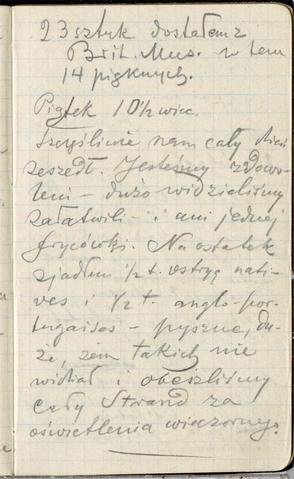 23 sztuk dostałem z
Brit. Mus. w tem
14 pięknych.
Piątek 10½ wiec.
Szczęśliwie nam cały dzień
zeszedł. Jesteśmy zdowo-
leni – dużo widzieliśmy
załatwili – i ani jednej
frycówki. Na ostatek
zjadłem ½ t. ostryg nati-
ves i ½ t. anglo-por-
tugaises – pyszne, du-
że, żem takich nie
widział i obeszliśmy
cały Strand za
oświetlenia wieczornego.